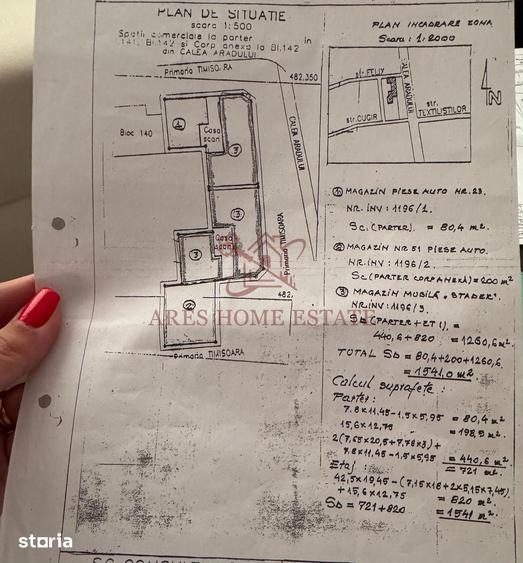 PLAN DE SITUATIE
scara 1:500
Spatii comerciale la parter in
141, Bl.142 si Corp anexa la Bl.142
din CALEA ARADULUI
Primaria TIMISOARA
482.350
Bloc 140
1
Casa
scari
3
CALEA ARADULUI
3
Casa
scarii
3
Primaria TIMISOARA
482.
2
Primaria TIMISOARA
PLAN INCADRARE ZONA
Scara : 1:2000
str. FELIX
CALEA ARADULUI
str. CUGIR
str.
TEXTILISTILOR
N
① MAGAZIN PIESE AUTO NR. 23.
NR. INV : 1196/1.
Sc. (PARTER). = 80,4 m².
② MAGAZIN NR 51 PIESE AUTO.
NR. INV : 1196/2.
Sc (PARTER CORP ANEXA) = 200 m²
③ MAGAZIN MOBILĂ „STADER".
NR. INV : 1196/3.
SD (PARTER + ET 1), =
440,6 + 820 = 1260,6 m².
TOTAL SD = 80,4+200+1260,6.
= 1541,0 m²
Calcul suprafete :
Parter:
7.8x11,45-1,5x5,95 = 80,4 m²
15,6x12,75 = 198,9 m².
2(7,65x20,5+7.78x3)+
7.8x11,45-1,5x5,95 = 440,6 m²
= 721 m².
Etaj :
42,5x19,45-(7,15x18+2x5,15x7,45)
+15,6x12,75 = 820 m²
SD = 721+820 = 1541 m².
ARES HOME ESTATE
storia